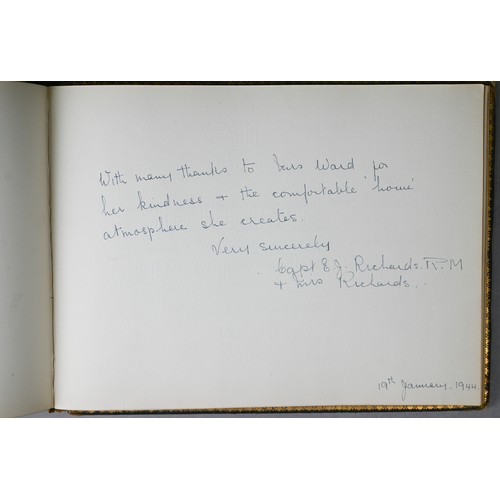 With many thanks to Mrs Ward for
her kindness + the comfortable 'home'
atmosphere she creates.
Very sincerely
Capt E J. Richards. R.M
+ Mrs Richards.
19th January. 1944.